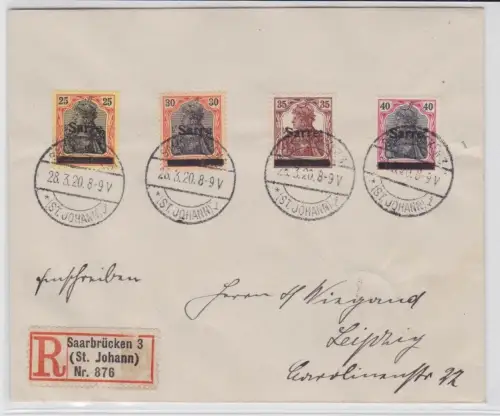 25 25 30 30 35 35 40 40
Sarre Sarre Sarre Sarre
28.3.20.8-9V 28.3.20.8-9V 28.3.20.8-9V 3.20.8-9V
*(ST.JOHANN) *(ST.JOHANN) *(ST.JOHANN) *(ST.JOHANN)
Einschreiben
Herrn Wiegand
Leipzig
Carolinenstr 22
R Saarbrücken 3
(St. Johann)
Nr. 876